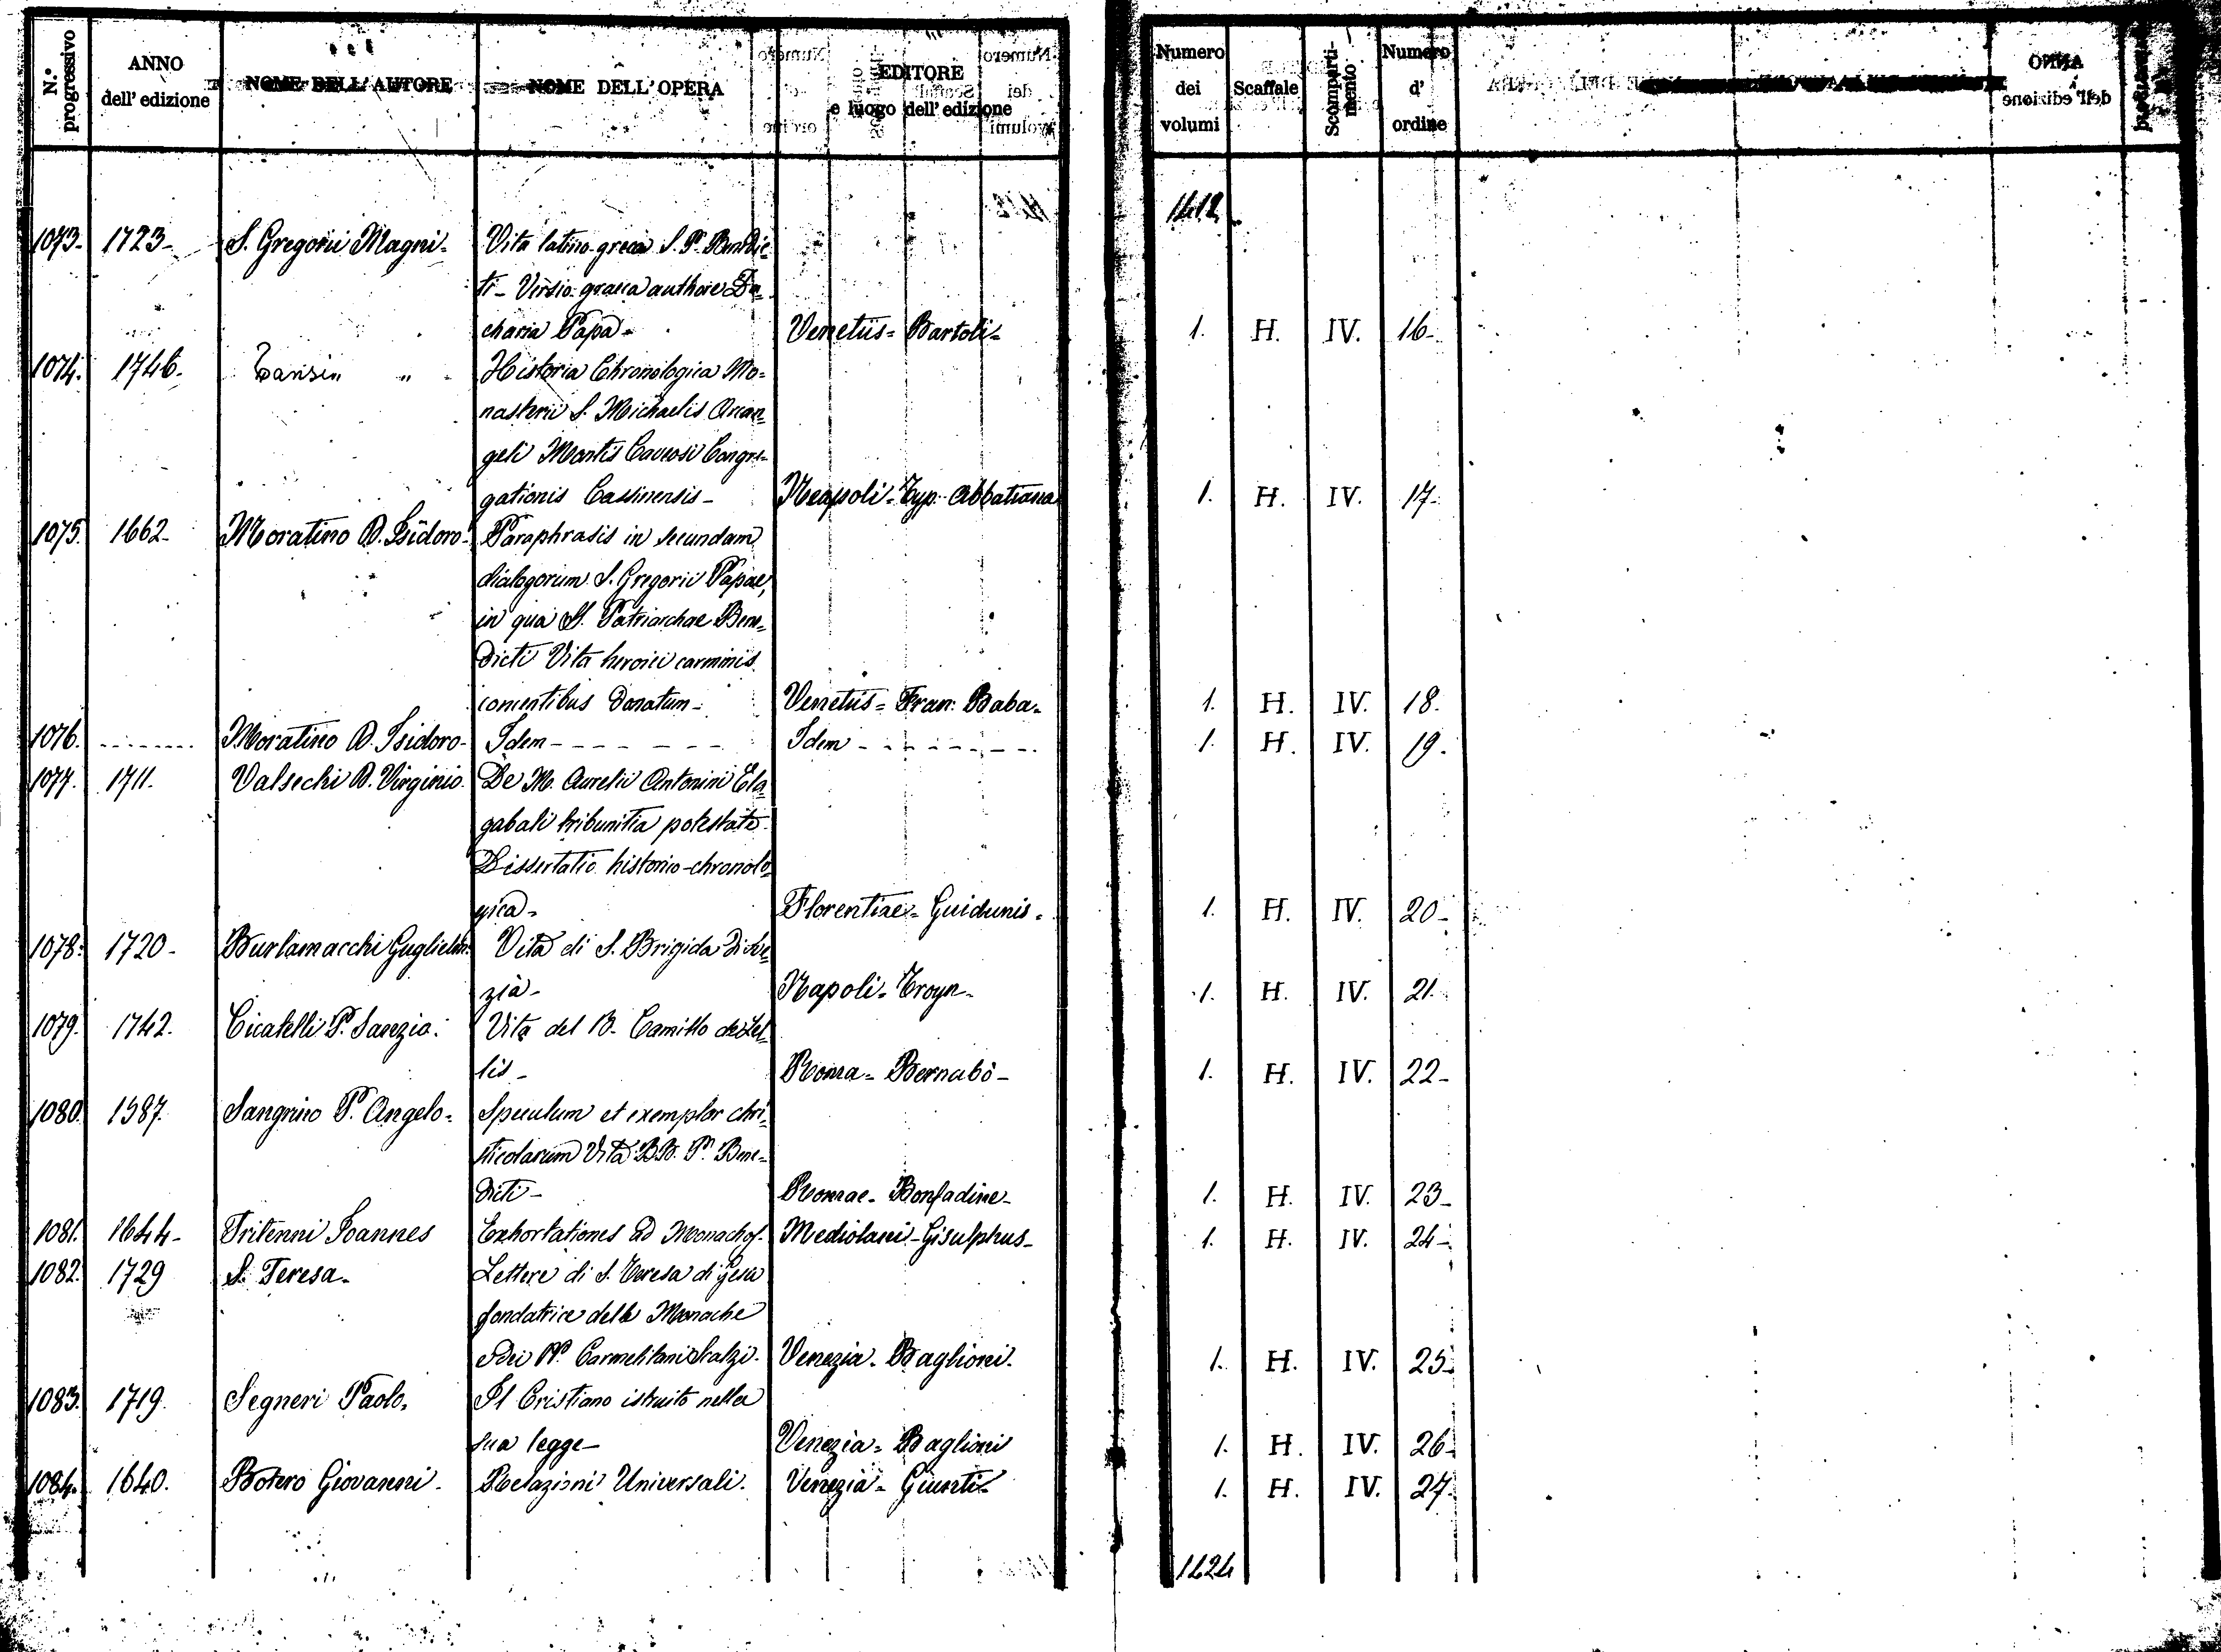 N.° progressivo
ANNO dell' edizione
NOME DELL' AUTORE
NOME DELL' OPERA
EDITORE e luogo dell' edizione
Numero dei volumi
Scaffale
Scomparti-mento
Numero d' ordine
1412
1073. 1723- S. Gregorii Magni- Vita latino-greca S. P. Benedic-
ti- Versio graeca authore
charia Papa- Venetiis= Bartoli- 1. H. IV. 16-
1074. 1746. Tansin " Historia Chronologica Mo-
nasterii S. Michaelis Arcan-
geli Montis Caveosi Congre-
gationis Cassinensis- Neapoli- Typ. Abbatiana 1. H. IV. 17-
1075. 1662- Moratino D. Isidoro- Paraphrasis in secundum
dialogorum S. Gregorii Papae,
in qua S. Patriarchae Bene-
dicti Vita heroici carminis
concentibus donatum- Venetiis= Fran: Baba- 1. H. IV. 18.
1076. Moratino D. Isidoro- Idem- Idem- 1. H. IV. 19.
1077. 1711. Valsechi D. Virginio. De M. Aurelii Antonini Ela-
gabali tribunitia potestate
Dissertatio historico-chronolo-
gica- Florentiae- Guiducis- 1. H. IV. 20-
1078. 1720- Burlamacchi Guglielm. Vita di S. Brigida di Sve-
zia- Napoli- Troyn- 1. H. IV. 21.
1079. 1742. Cicatelli P. Sanzio. Vita del B. Camillo de Lel-
lis- Roma- Bernabò- 1. H. IV. 22-
1080. 1587. Sangrino P. Angelo- Speculum et exemplar chri-
sticolarum Vita BB. P. Bene-
dicti- Romae- Bonfadine- 1. H. IV. 23-
1081. 1644- Tritenni Joannes Exhortationes ad Monachos. Mediolani- Gisulphus- 1. H. IV. 24-
1082. 1729 S. Teresa- Lettere di S. Teresa di Gesù
fondatrice delle Monache
e dei PP. Carmelitani Scalzi. Venezia- Baglioni. 1. H. IV. 25-
1083. 1719. Segneri Paolo. Il Cristiano istruito nella
sua legge- Venezia- Baglioni 1. H. IV. 26-
1084. 1640. Botero Giovanni- Relazioni Universali. Venezia- Giunti- 1. H. IV. 27.
1424